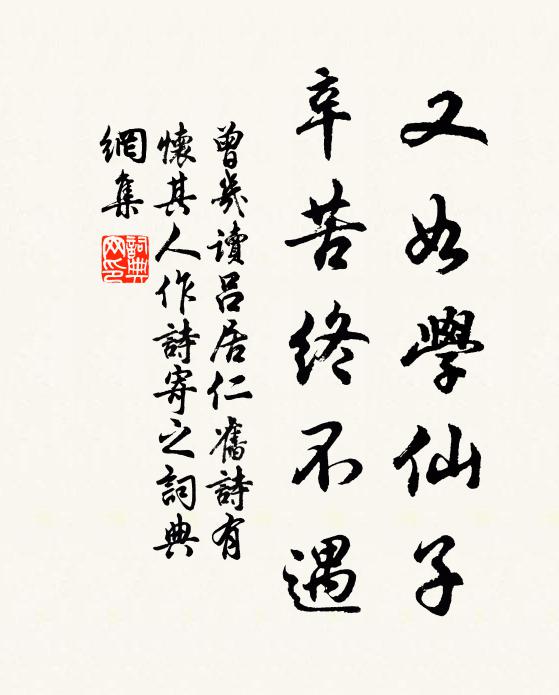 又如學仙子
辛苦終不遇
曾幾讀呂居仁舊詩有
懷其人作詩寄之詞典
網集
詞典
网印